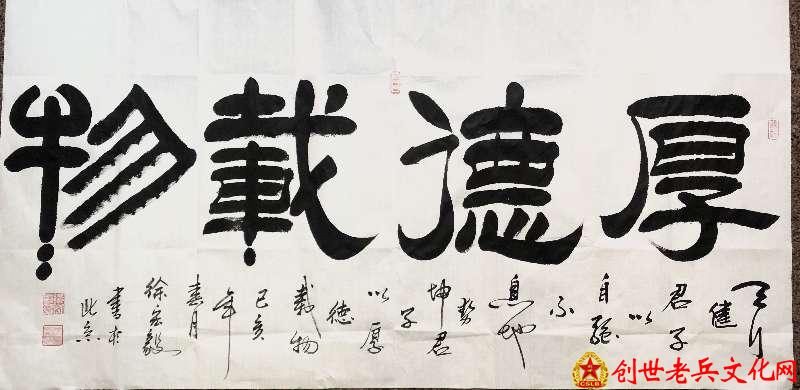 厚德载物
天行
健
君子
以
自强
不
息地
势
坤君
子
以厚
德
载物
己亥
年
春月
徐宏毅
书于
北京
创世老兵文化网
CSLB